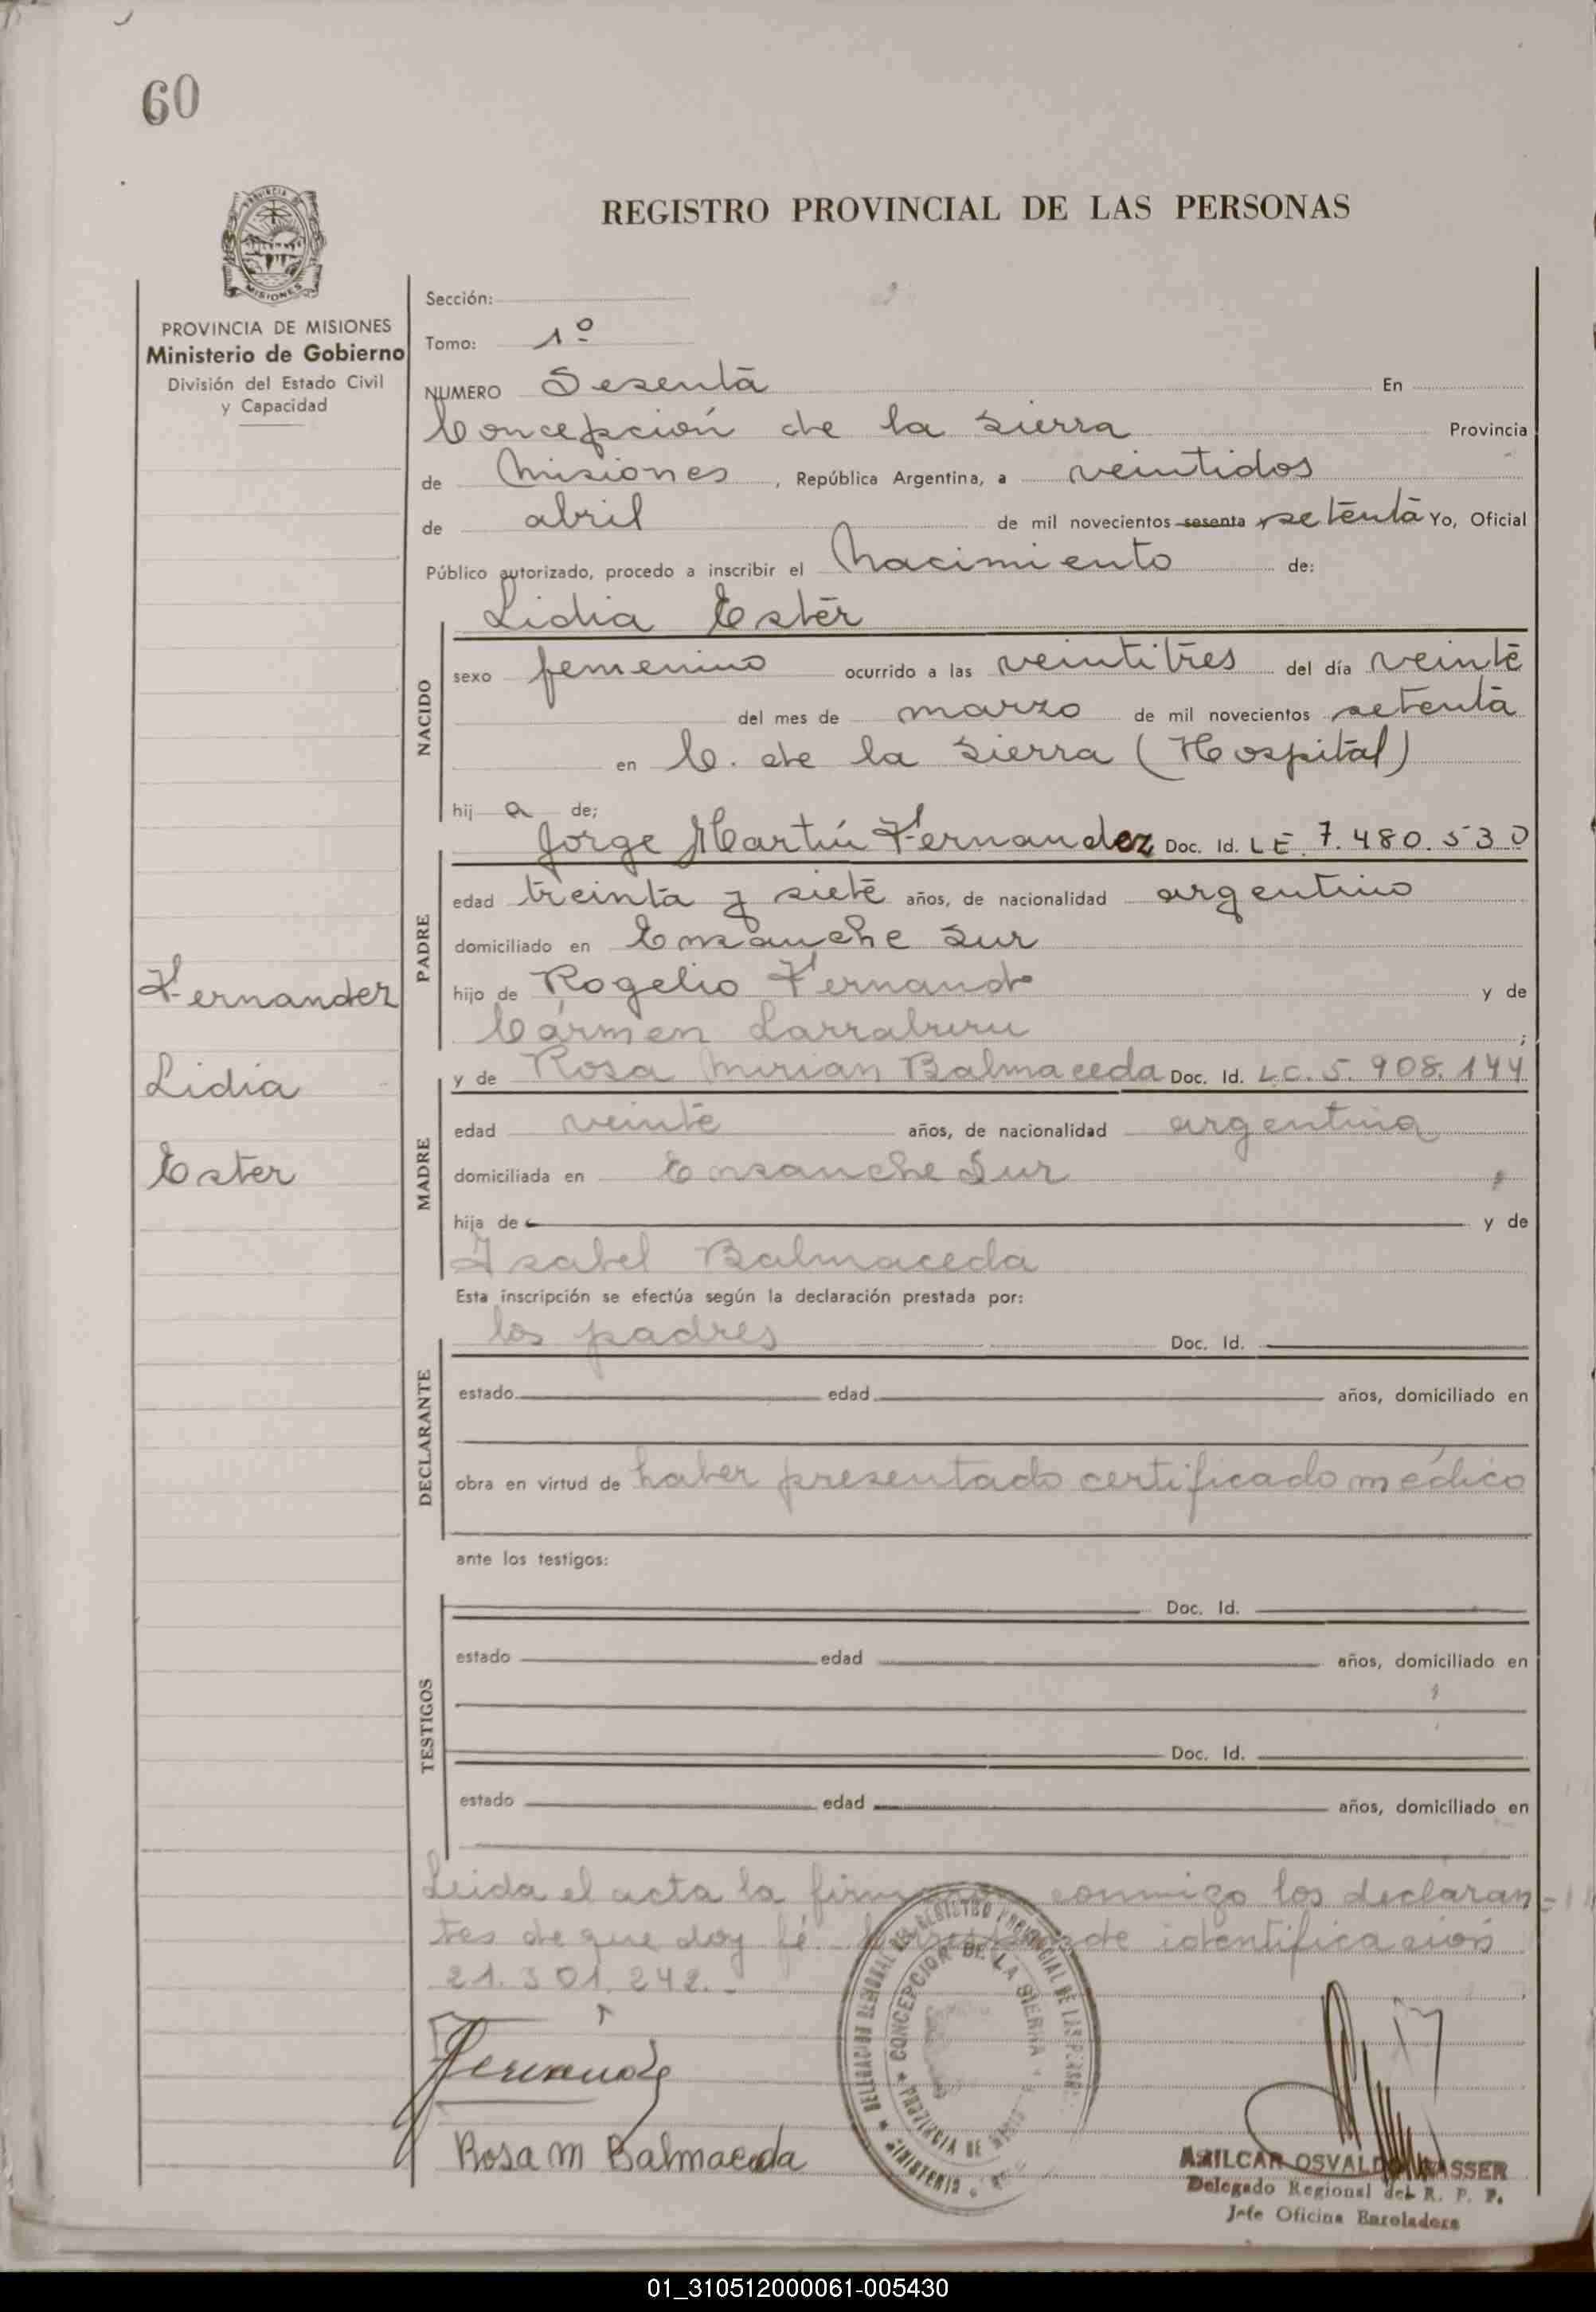 60
PROVINCIA DE
MISIONES
PROVINCIA DE MISIONES
Ministerio de Gobierno
División del Estado Civil
y Capacidad
Fernandez
Lidia
Ester
REGISTRO PROVINCIAL DE LAS PERSONAS
Sección:
Tomo: 1º
NUMERO Sesenta En
Concepción de la Sierra Provincia
de Misiones, República Argentina, a veintidos
de abril de mil novecientos sesenta setenta Yo, Oficial
Público autorizado, procedo a inscribir el Nacimiento de:
Lidia Ester
NACIDO
sexo femenino ocurrido a las veintitres del día veinte
del mes de marzo de mil novecientos setenta
en C. de la Sierra (Hospital)
hij a de;
Jorge Martín Fernandez Doc. Id. LE. 7.480.530
PADRE
edad treinta y siete años, de nacionalidad argentino
domiciliado en Ensanche Sur
hijo de Rogelio y de
Cármen Larraburu ;
y de Rosa Mirian Balmaceda Doc. Id. L.C. 5.908.144
MADRE
edad veinte años, de nacionalidad argentina
domiciliada en Ensanche Sur
hija de y de
Isabel Balmaceda
Esta inscripción se efectúa según la declaración prestada por:
los padres Doc. Id.
DECLARANTE
estado edad años, domiciliado en
obra en virtud de haber presentado certificado médico
ante los testigos:
TESTIGOS
Doc. Id.
estado edad años, domiciliado en
Doc. Id.
estado edad años, domiciliado en
Leida el acta la conmigo los declaran=
tes de que doy fé. de identificación
21.301.242.-
Rosa M Balmaceda
DELEGACION REGIONAL DEL REGISTRO PROVINCIAL DE LAS
CONCEPCION DE LA SIERRA
PROVINCIA DE
MINISTERIO
AMILCAR OSVALDO
Delegado Regional del R. P. P.
Jefe Oficina Enroladora
01_310512000061-005430